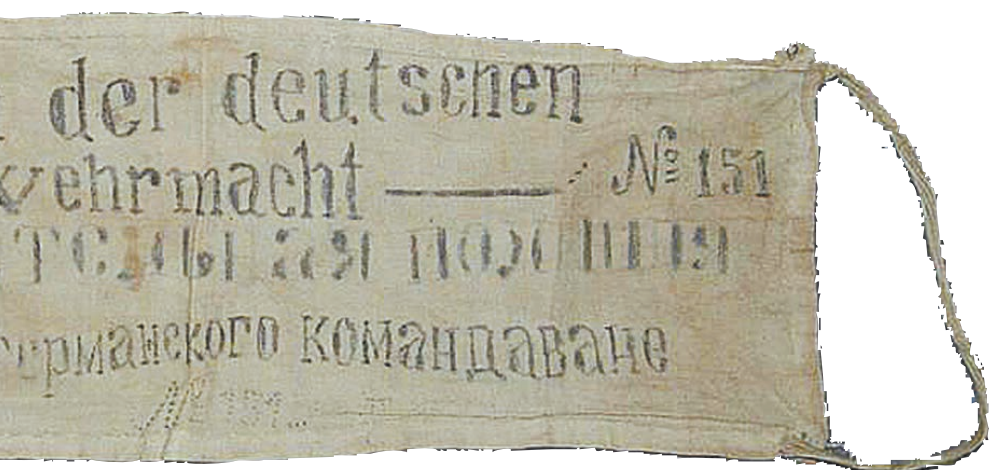 der deutschen
wehrmacht — № 151
тельная полиция
германского командаване